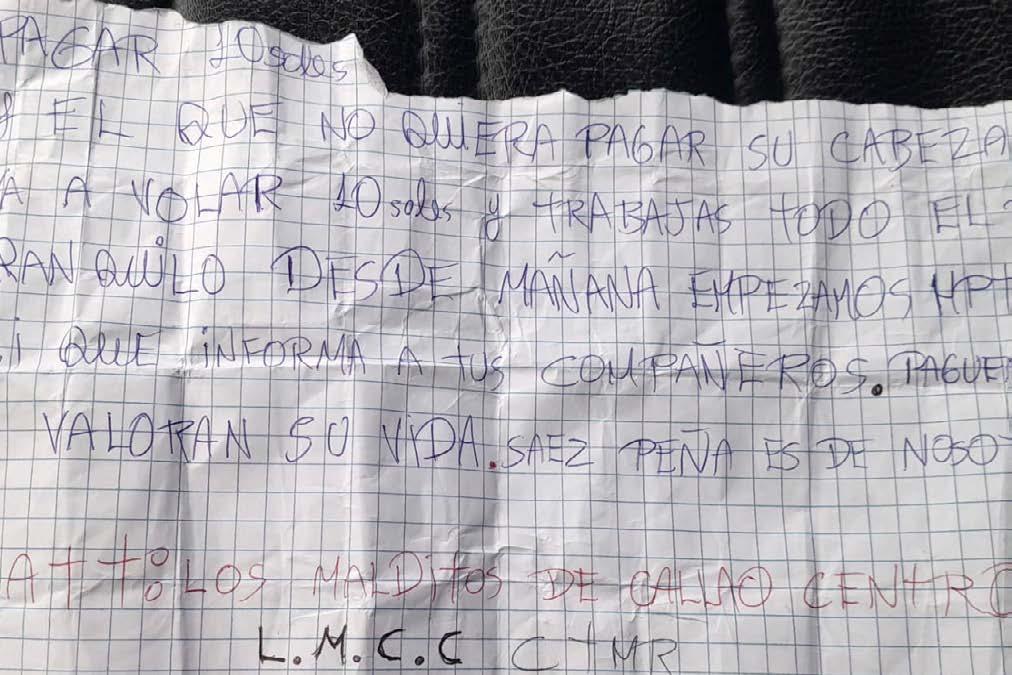 PAGAR 10 soles
EL QUE NO QUIERA PAGAR SU CABEZA
A A VOLAR 10 soles y TRABAJAS TODO EL
RANQUILO DESDE MAÑANA EMPEZAMOS HPT
i QUE INFORMA A tUS COMPAÑEROS. PAGUE
VALORAN SU VIDA. SAEZ PEÑA ES DE NOSO
Att: LOS MALDITOS DE CALLAO CENTRO
L.M.C.C CTMR